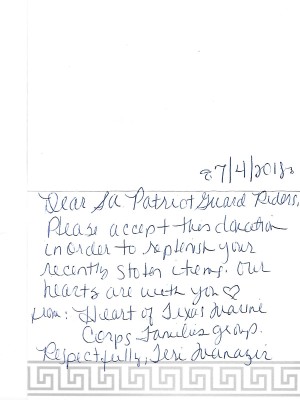 7/4/2018
Dear SA Patriot Guard Riders,
Please accept this donation
in order to replenish your
recently stolen items. Our
hearts are with you ♡
from: Heart of Texas Marine
Corps Families group.
Respectfully, Teri